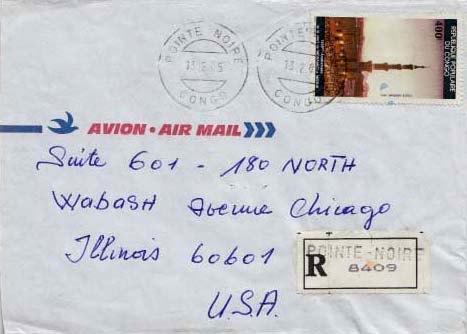 POINTE NOIRE
CONGO
POINTE
13.2.8
CONGO
REPUBLIQUE POPULAIRE
DU CONGO
400F
AVION • AIR MAIL
Suite 601 - 180 NORTH
WABASH Avenue Chicago
Illinois 60601
U.S.A.
POINTE-NOIRE
R 8409